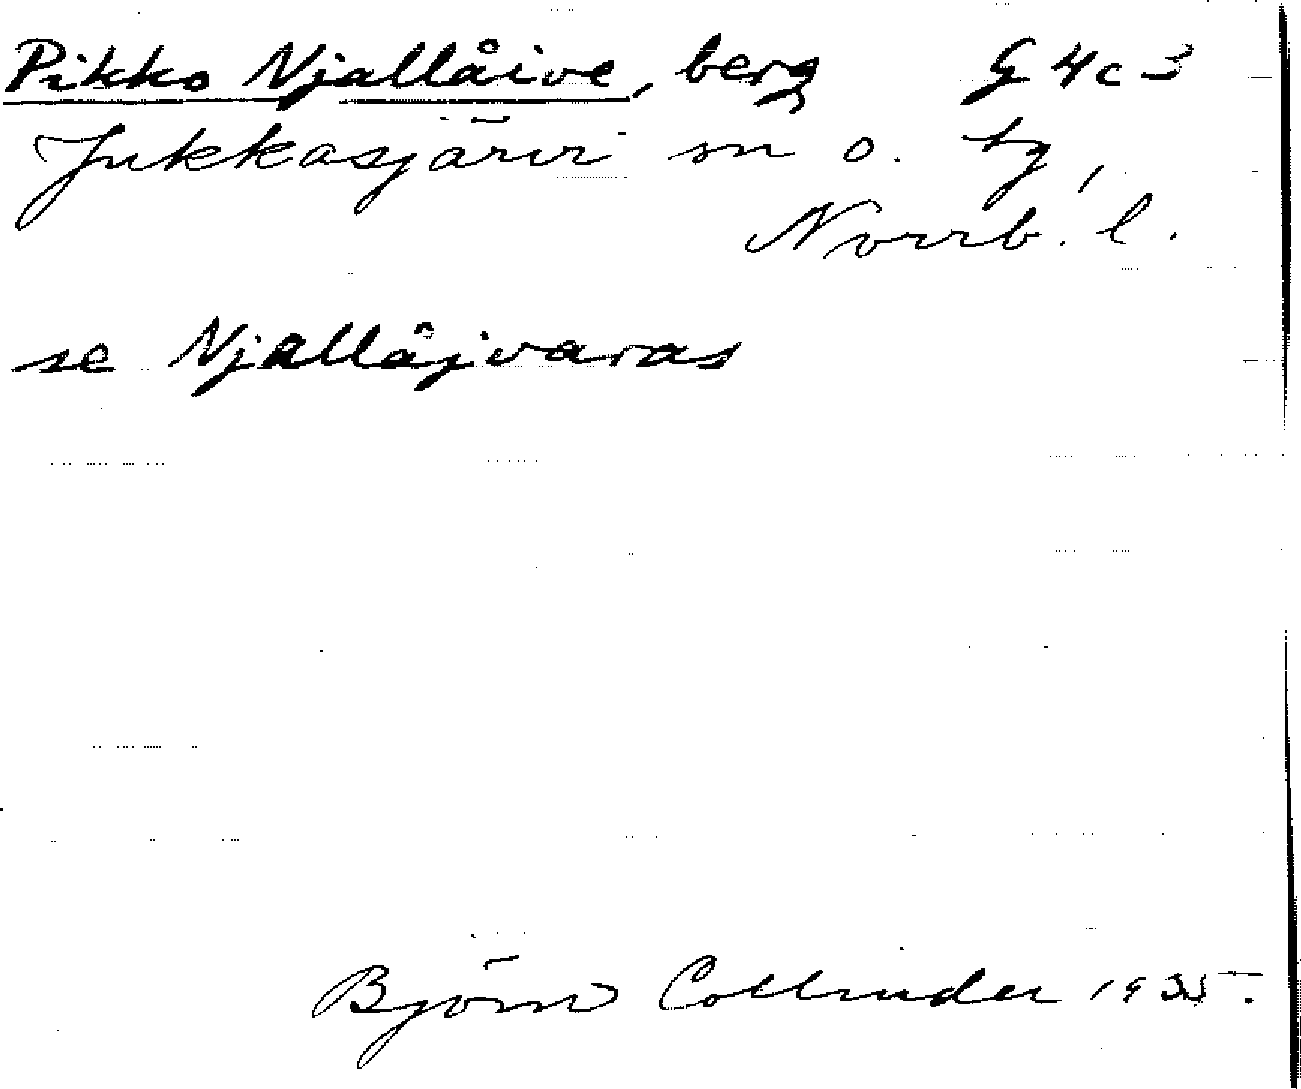 Pikko Njallåive, berg G 4 c 3
Jukkasjärvi sn o. tg,
Norrb. l.
se Njallåjvaras
Björn Collinder 1935.